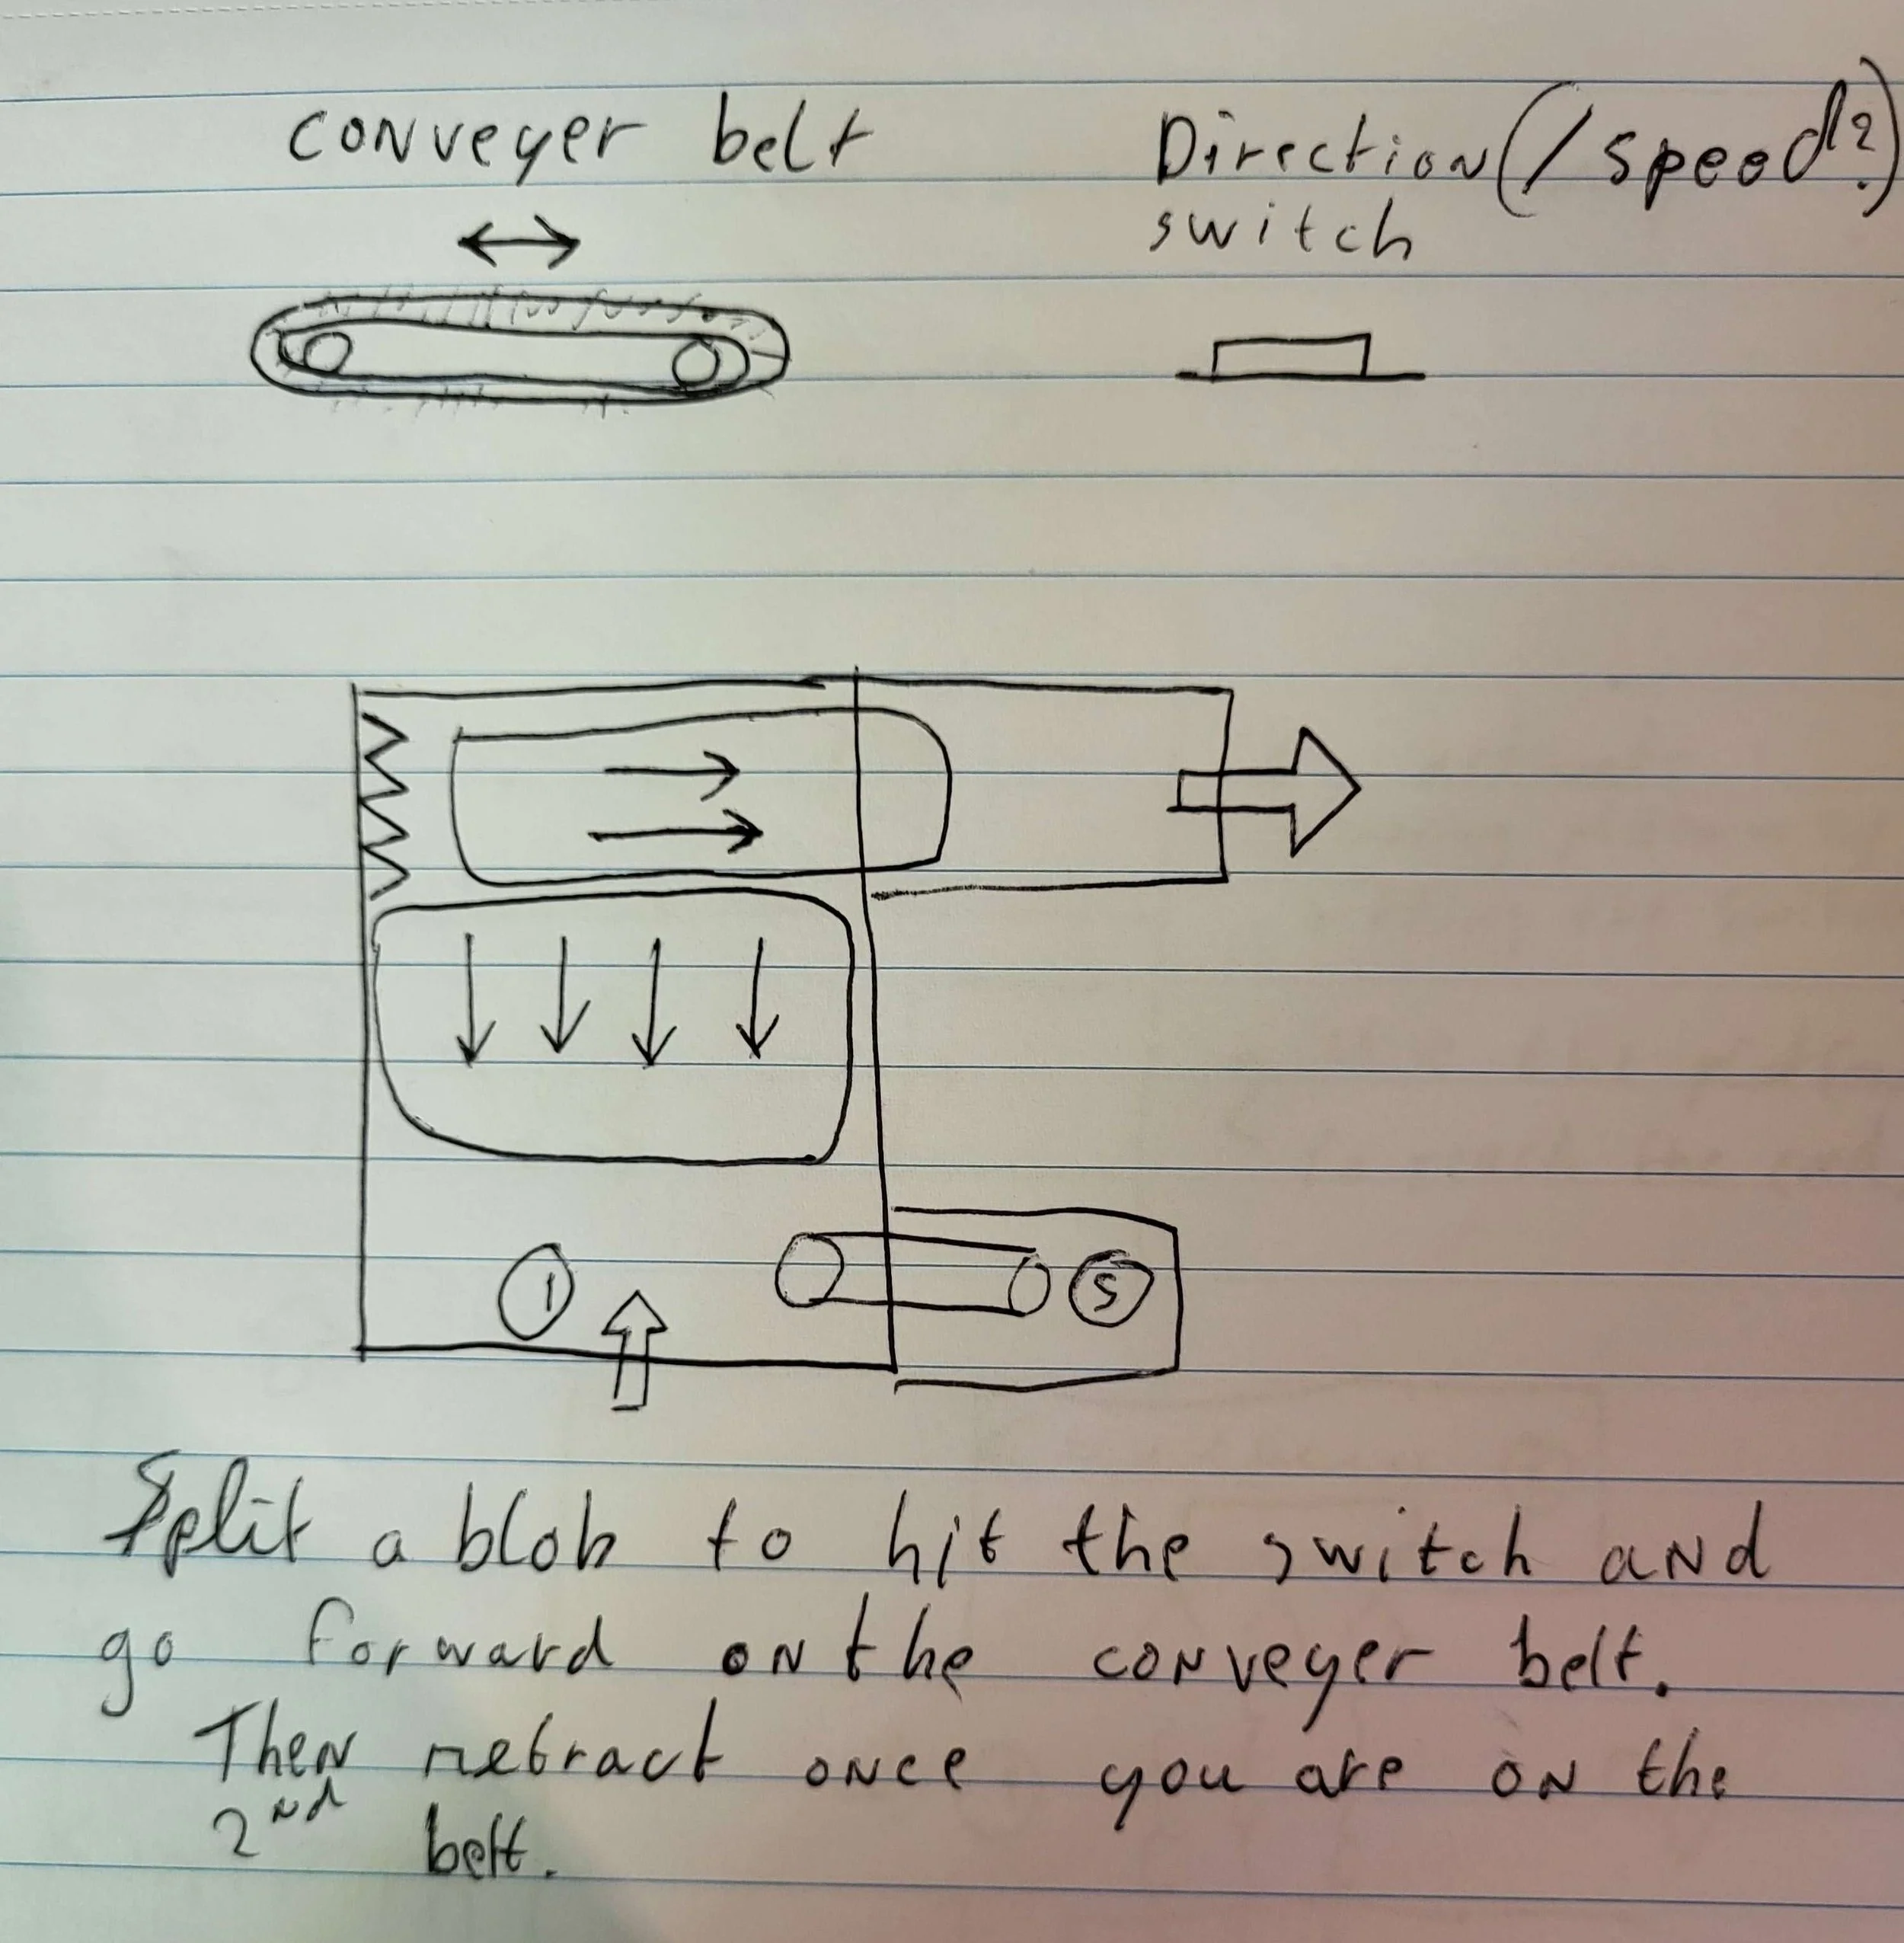 conveyer belt
Direction (/speed?)
switch
1
S
Split a blob to hit the switch and
go forward on the conveyer belt.
Then retract once you are on the
2nd belt.